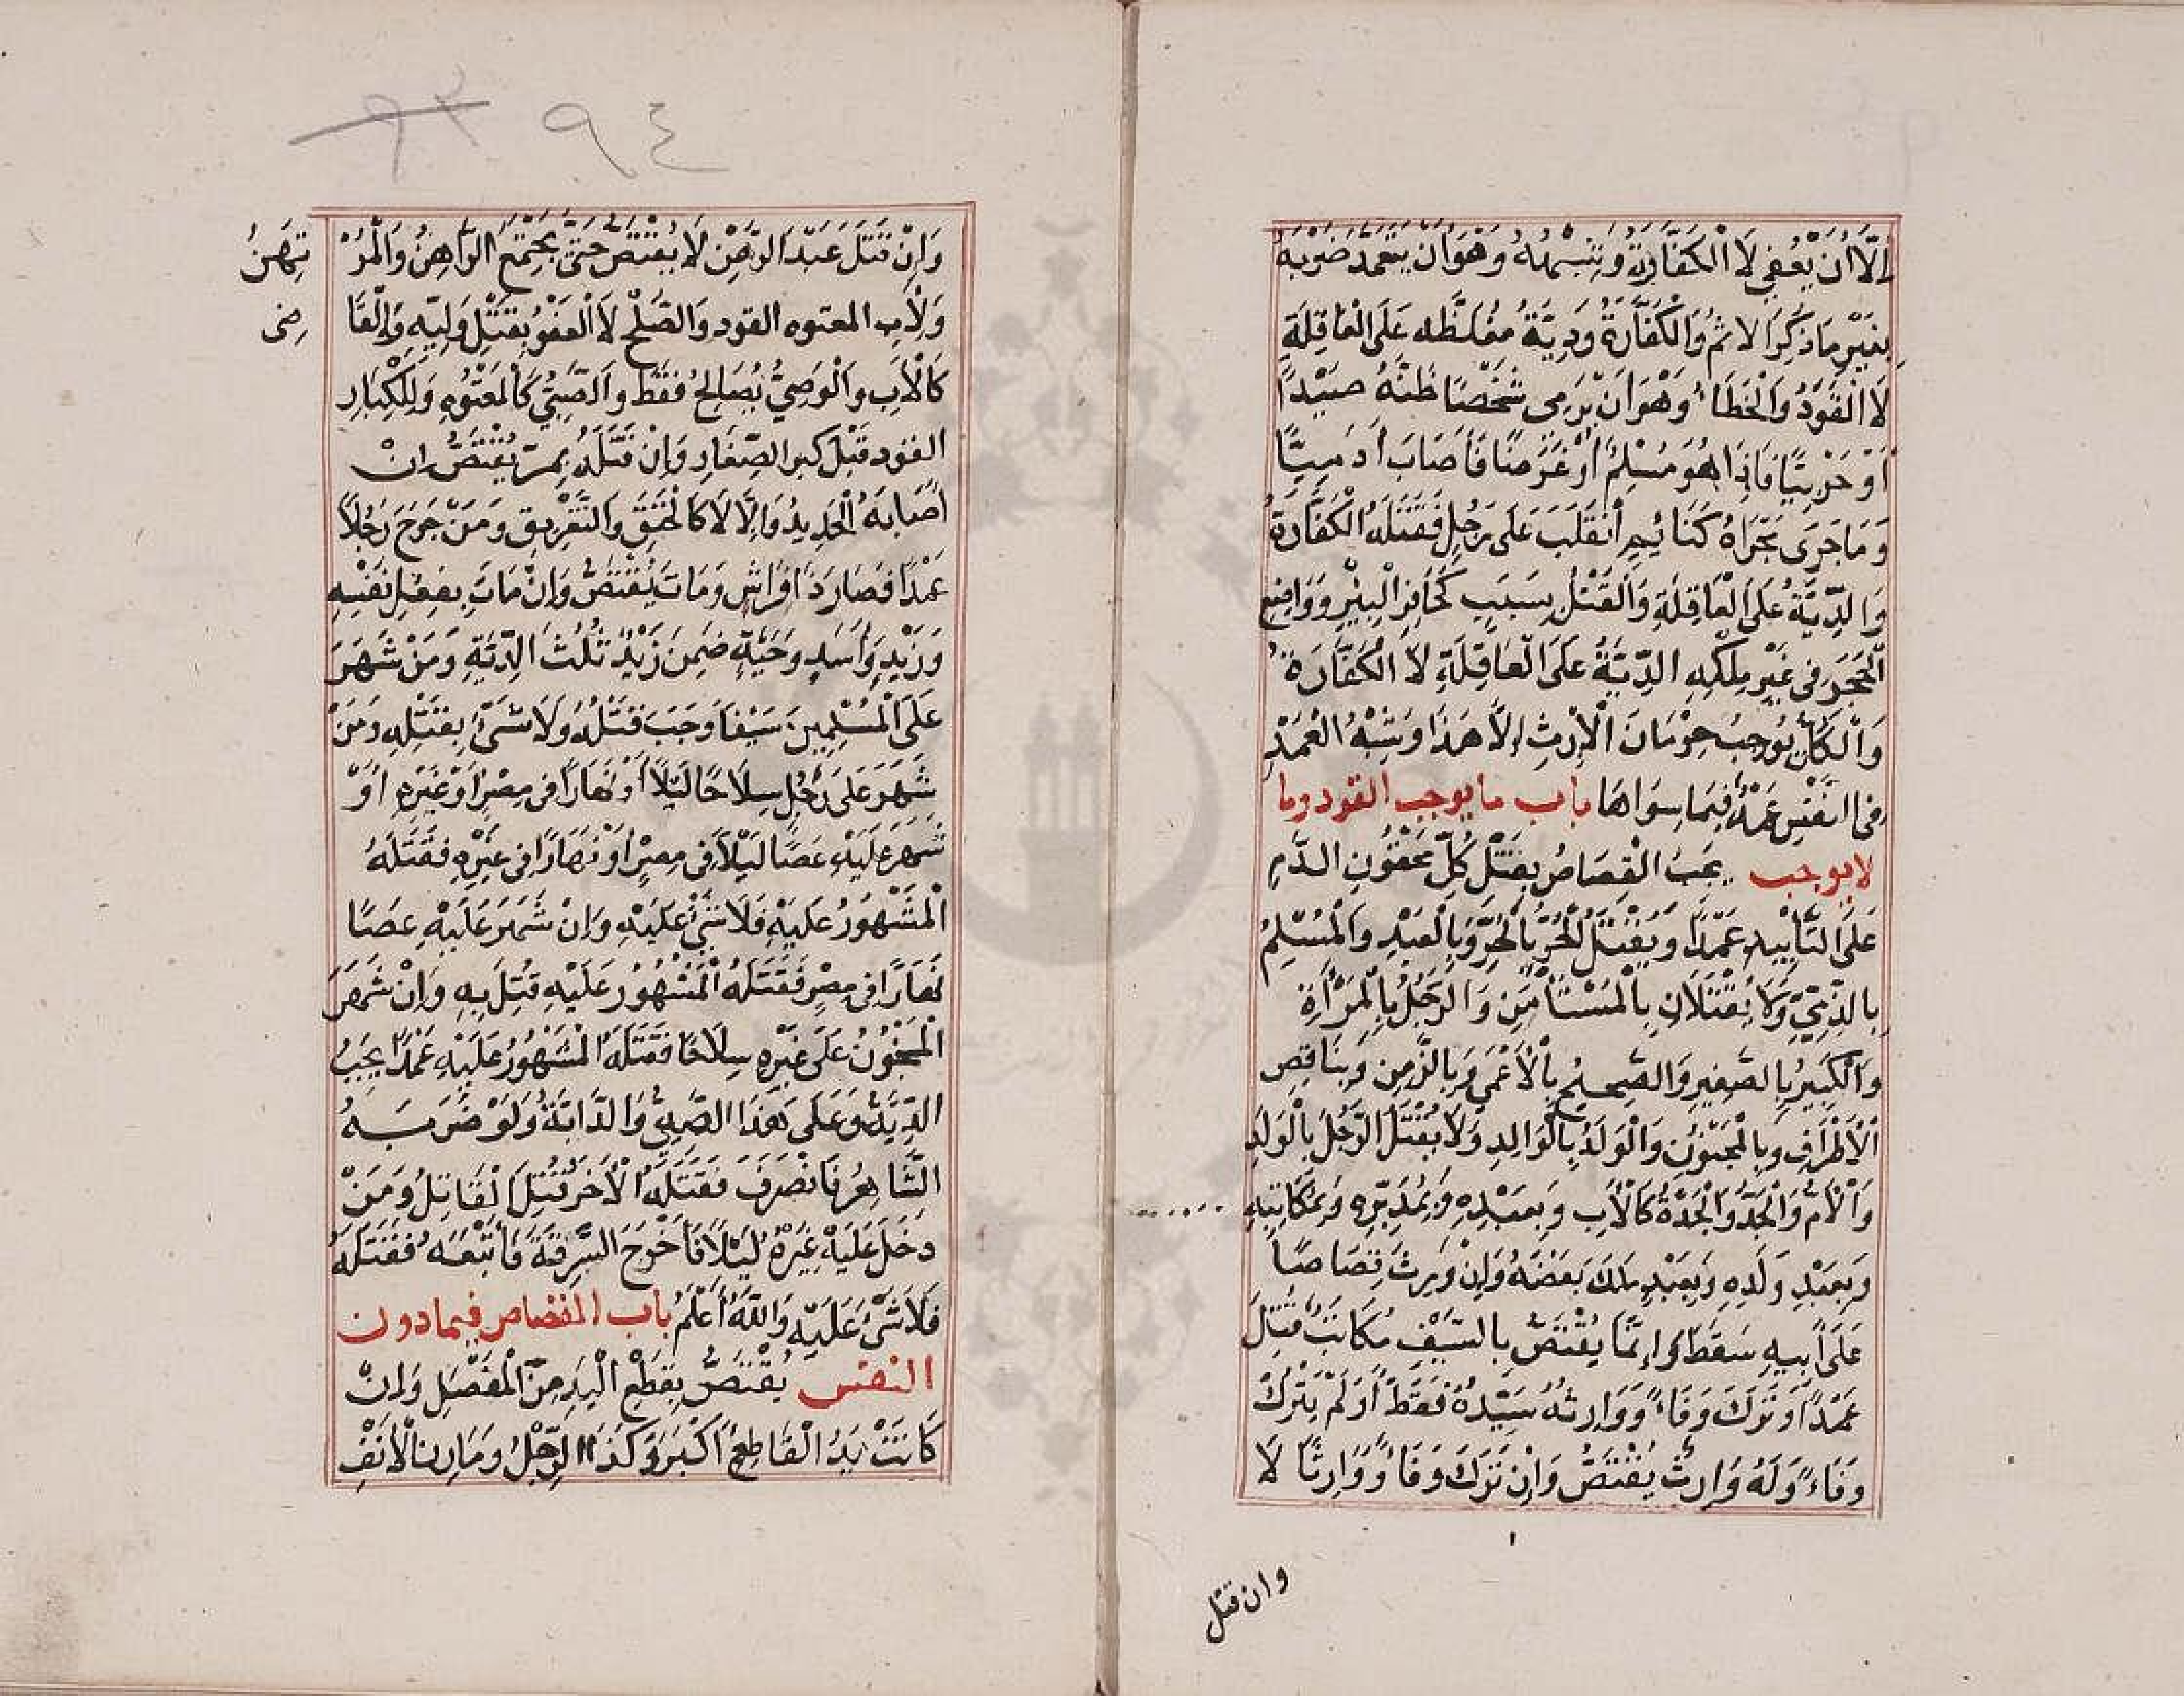 اِلَّا اَنْ يُعْفٰى لَا الْكَفَّارَةُ وَشِبْهُهُ وَهُوَ اَنْ يَتَعَمَّدَ ضَرْبَهُ
بِغَيْرِ مَا ذُكِرَ الاثْمُ وَالْكَفَّارَةُ وَدِيَّةٌ مُغَلَّظَه عَلَى الْعَاقِلَةِ
لَا الْقَوَدُ وَالْخَطَاءُ وَهُوَ اَنْ يَرْمِى شَخْصًا ظَنَّهُ صَيْدًا
اَوْ حَرْبِيًّا فَاِذَا هُوَ مُسْلِمٌ اَوْ غَرَضًا فَاَصَابَ اٰدَمِيًّا
وَمَا جَرَى مَجْرَاهُ كَنَائِمٍ اَنْقَلَبَ عَلَى رَجُلٍ فَقَتَلَهُ الْكَفَّارَةُ
وَالدِّيَّةُ عَلَى الْعَاقِلَةِ وَالْقَتْلُ بِسَبَبٍ كَحَافِرِ الْبِئْرِ وَوَاضِعِ
الْحَجَرِ فِى غَيْرِ مِلْكِهِ الدِّيَّةُ عَلَى الْعَاقِلَةِ لَا الْكَفَّارَةُ
وَالْكُلُّ يُوجِبُ حِرْمَانَ الْاِرْثِ اِلَّا هَذَا وَشِبْهُ الْعَمْدِ
فى النَّفْسِ عَمْدٌ فِيمَا سِوَاهَا باب ما يوجب القود وما
لا يوجب يَجِبُ الْقِصَاصُ بِقَتْلِ كُلِّ مَحْقُونِ الدَّمِ
عَلَى التَّاْبِيدِ عَمْدًا وَيُقْتَلُ الْحُرُّ بِالْحُرِّ وَبِالْعَبْدِ وَالْمُسْلِمُ
بِالذِّمِّيِّ وَلَا يُقْتَلَانِ بِالْمُسْتَاْمِنِ وَالرَّجُلُ بِالْمَرْاَةِ
وَالْكَبِيرُ بِالصَّغِيرِ وَالصَّحِيحُ بِالْاَعْمَى وَبِالزَّمِنِ وَبِنَاقِصِ
الْاَطْرَافِ وَبِالْمَجْنُونِ وَالْوَلَدُ بِالْوَالِدِ وَلَا يُقْتَلُ الرَّجُلُ بِالْوَلَدِ
وَالْاُمُّ وَالْجَدُّ وَالْجَدَّةُ كَالْاَبِ وَبِعَبْدِهِ وَبِمُدَبَّرِهِ وَبِمُكَاتَبِهِ
وَبِعَبْدِ وَلَدِهِ وَبِعَبْدٍ مَلَكَ بَعْضَهُ وَاِنْ وَرِثَ قِصَاصًا
عَلَى اَبِيهِ سَقَطَ وَاِنَّمَا يُقْتَصُّ بِالسَّيْفِ مُكَاتَبٌ قُتِلَ
عَمْدًا وَتَرَكَ وَفَاءً وَوَارِثُهُ سَيِّدُهُ فَقَطْ اَوْ لَمْ يَتْرُكْ
وَفَاءً وَلَهُ وَارِثٌ يُقْتَصُّ وَاِنْ تَرَكَ وَفَاءً وَوَارِثًا لَا
وان قتل
٩٤ ٩٣
وَاِنْ قَتَلَ عَبْدَ الرَّهْنِ لَا يُقْتَصُّ حَتَّى يَجْتَمِعَ الرَّاهِنُ وَالْمُرْ تَهِنُ
وَلِاَبِ المعتوه القود وَالصُّلْحُ لَا الْعَفْوُ بِقَتْلِ وَلِيِّهِ وَالْقَا ضى
كَالْاَبِ وَالْوَصِيُّ يُصَالِحُ فَقَطْ وَالصَّبِيُّ كَالْمَعْتُوهِ وَلِلْكِبَارِ
القود قَبْلَ كبر الصِّغَارِ وَاِنْ قَتَلَهُ بِمَرٍّ يُقْتَصُّ اِنْ
اَصَابَهُ الْحَدِيدُ وَاِلَّا لَا كَالْخَنْقِ وَالتَّغْرِيقِ وَمَنْ جَرَحَ رَجُلًا
عَمْدًا فَصَارَ ذَا فِرَاشٍ وَمَاتَ يُقْتَصُّ وَاِنْ مَاتَ بِفِعْلِ نَفْسِهِ
وَزَيْدٍ وَاَسَدٍ وَحَيَّةٍ ضَمِنَ زَيْدٌ ثُلُثَ الدِّيَةِ وَمَنْ شَهَرَ
عَلَى الْمُسْلِمِينَ سَيْفًا وَجَبَ قَتْلُهُ وَلَا شَىْءَ بِقَتْلِهِ وَمَنْ
شَهَرَ عَلَى رَجُلٍ سِلَاحًا لَيْلًا اَوْ نَهَارًا فِى مِصْرٍ اَوْ غَيْرِهِ اَوْ
شَهَرَ عَلَيْهِ عَصًا لَيْلًا فِى مِصْرٍ اَوْ نَهَارًا فِى غَيْرِهِ فَقَتَلَهُ
الْمَشْهُورُ عَلَيْهِ فَلَا شَىْءَ عَلَيْهِ وَاِنْ شَهَرَ عَلَيْهِ عَصًا
نَهَارًا فِى مِصْرٍ فَقَتَلَهُ الْمَشْهُورُ عَلَيْهِ قُتِلَ بِهِ وَاِنْ شَهَرَ
الْمَجْنُونُ عَلَى غَيْرِهِ سِلَاحًا فَقَتَلَهُ الْمَشْهُورُ عَلَيْهِ عَمْدًا يَجِبُ
الدِّيَةُ وَعَلَى هَذَا الصَّبِيُّ وَالدَّابَّةُ وَلَوْ ضَرَبَهُ
الشَّاهِرُ فَانْصَرَفَ فَقَتَلَهُ الْاٰخَرُ قُتِلَ الْقَاتِلُ وَمَنْ
دَخَلَ عَلَيْهِ غَيْرُهُ لَيْلًا فَاَخْرَجَ السَّرِقَةَ فَاَتْبَعَهُ فَقَتَلَهُ
فَلَا شَىْءَ عَلَيْهِ وَاللّٰهُ اَعْلَمُ باب القصاص فيما دون
النفس يُقْتَصُّ بِقَطْعِ الْيَدِ مِنَ الْمَفْصِلِ وَاِنْ
كَانَتْ يَدُ الْقَاطِعِ اَكْبَرَ وَكَذَا الرِّجْلُ وَمَارِنُ الْاَنْفِ